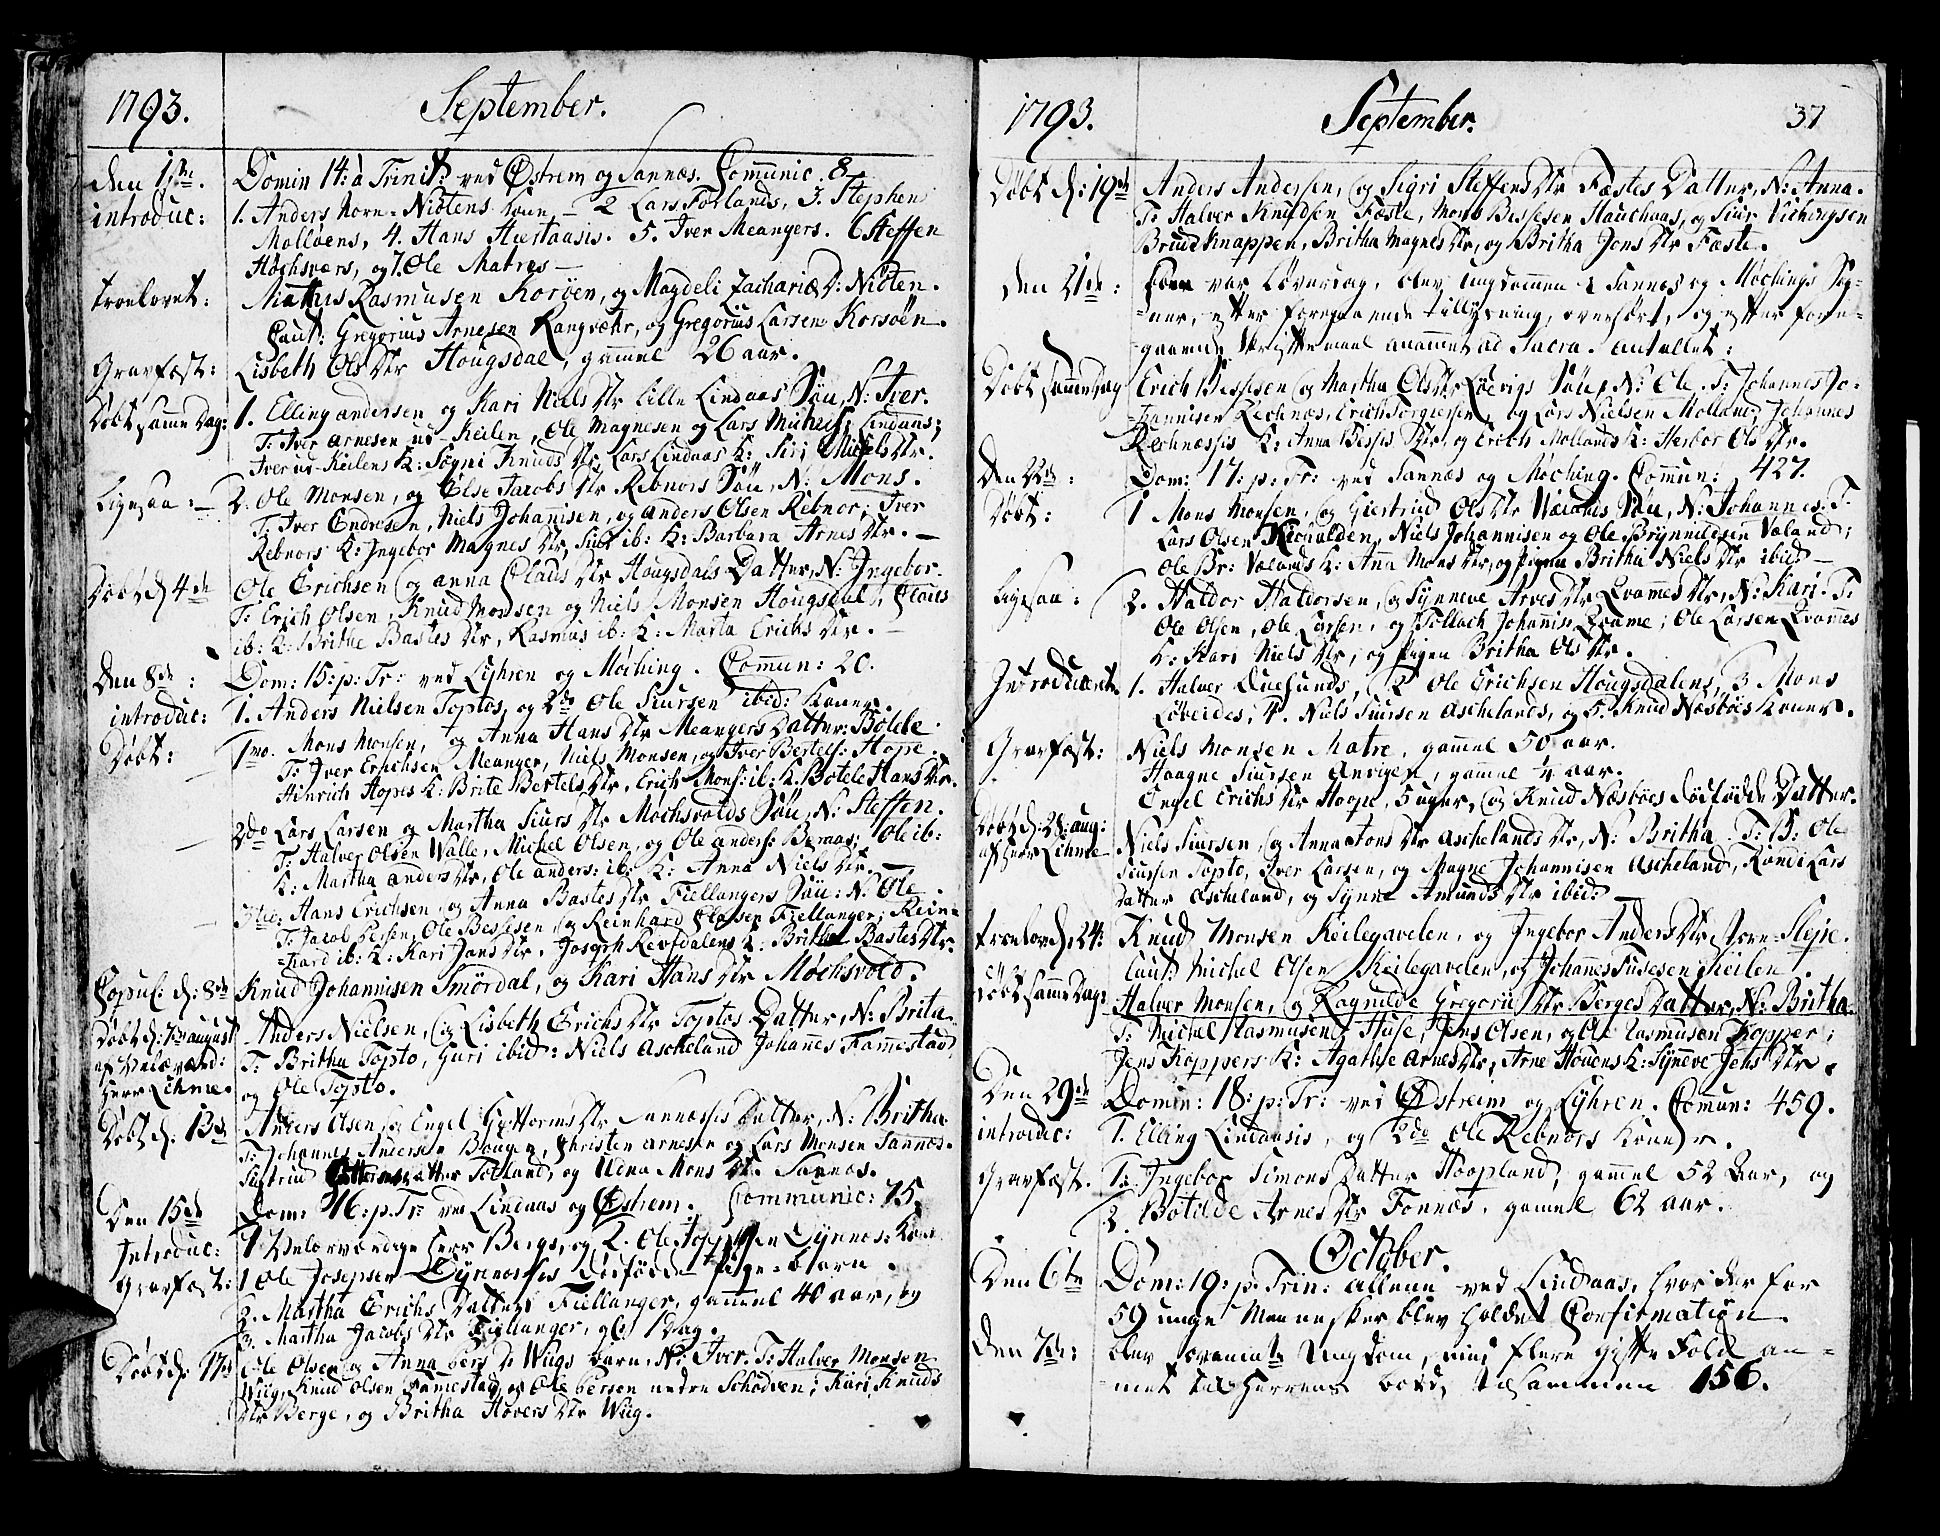 1793. September.
den 1ste. Domin 14: à Trinit: ved Østrem og Sannæs. Comunic. 8
introduc: 1. Anders Norn-Niøtens Kone, 2 Lars Forlands, 3. Stephen
Molløens, 4. Hans Hiertaasis. 5. Iver Meangers. 6 Steffen
Høchsværs, og 7. Ole Matres
Troelovet: Rasmusen Korsøen, og Magdeli ZachariæD: Niøten.
Caut: Gregorius Arnesen Rangsætr, og Gregorius Larsen Korsøen.
Gravfæst: Lisbeth Ols Dtr Hougsdal, gammel 26 aar.
Døbt samme Dag: 1. Elling andersen og Kari Niels Dtr Lille Lindaas Søn, N: Iver.
T: Iver Arnesen ud-Keilen, Ole Magnesen og Lars Michels: Lindaas;
Iver ud-Keilens K: Sygni Knuds Dtr, Lars Lindaas K: Siri Michels Dtr.
Ligesaa: 2. Ole Monsen, og Else Jacobs Dtr Rebnors Søn, N: Mons.
T: Iver Endresen, Niels Johannisen, og anders Olsen Rebnor; Iver
Rebnors K: Ingebor Magnes Dtr, ib: K: Barbara Arnes Dtr.
Døbt d 4de Ole Erichsen og anna Claus Dtr Hougsdals Datter, N: Ingebor.
T: Erich Olsen, Knud Monsen og Niels Monsen Hougsdal, Claus
ib: K: Brithe Bastes Dtr, Rasmus ib: K: Marta Erichs Dtr.
Den 8de: Dom: 15: p: Tr: ved Lyhren og Møching. Commun: 20.
introduc: 1. Anders Nielsen Toptos, og 2do Ole Siursen ibid: Koner.
Døbt: 1mo. Mons Monsen, og Anna Hans Dtr Meangers Datter: Botilde.
T: Iver Erichsen Meanger, Niels Monsen, og Iver Bertels: Hope.
Hinrich Hopes K: Brite Bertels Dtr, Erich Mons: ib: K: Botele Hans Dtr.
2do Lars Larsen og Martha Siurs Dtr Mochsvolds Søn, N: Steffen.
T: Halver Olsen Walle, Michel Olsen, og Ole anders: Bernaas; Ole ib:
K: Martha anders Dtr, Ole anders: ib: K: Anna Niels Dtr.
3tio Hans Erichsen og Anna Bastes Dtr Fiellangers Søn: N: Ole.
T: Jacob Persen, Ole Bessesen og Reinhard Classen Fiellanger; Rein-
hard ib: K: Kari Jans Dtr, Joseph Refsdalens K: Britha Bastes Dtr.
Copul: d: 8de Knud Johannisen Smørdal, og Kari Hans Dtr Møchsvold.
Døbt d: august Anders Nielsen, og Lisbeth Erichs Dtr Toptos Datter, N: Brita.
af Velærværd: T: Britha Topto, Guri ibid: Niels Ascheland Johannes Fammestad,
Herr Lihme. og Ole Topto.
Døbt d. 13de Anders Olsen, og Engel Guttorms Dtr Sannæsses Datter, N: Britha
T: Johannes Andersen Bougen, Christen Arnesen og Lars Monsen Sannæs.
Siustrud Datter Totland, og Udna Mons Dtr Sannæs.
Den 15de Dom: 16: p. Tr: ved Lindaas og Østrem. Communic: 75.
Introduc: 1 Velærværdige Herr Bergs, og 2. Ole Dynnes: Koner
Gravfæst: 1 Ole Josepsen Dyrenosses dødfødde pige-barn.
2. Martha Erichs Datter Fiellanger, gammel 40 aar, og
3. Martha Jacobs Dtr Fiellanger, gl: 1 Dag.
Døbt d: 17de Ole Olsen og Anna Pers D: Wiigs barn, N: Iver. T: Halver Monsen
Wiig, Knud Olsen Famestad, og Ole Persen nedre Schodven; Kari Knuds
Dtr Berge, og Britha Hovers Dtr Wiig.
1793. September. 37
Døbt d: 19de Anders Andersen, og Sigri Steffens Dtr Fæstes Datter, N: Anna.
T: Halver Knudsen Fæste, Mons Bessesen Hauchaas, og Siur Vichingsen
Bruudknappen, Britha Magnes Dtr, og Britha Jens Dtr Fæste.
Den 21de: som var Løverdag, blev ungdommen i Sannæs og Møchings Sog-
ner, efter foregaaende tillysning, overhørt, og efter fore-
gaaende Skriftemaal anammet ad Sacra. antallet:
Døbt samme dag Erich Bessesen og Martha Ols Dtr Lurvigs Søn, N: Ole. T: Johannes Jo-
hannisen Rechnæs, Erich Torgiersen, og Lars Nielsen Molland; Johannes
Rechnæsses K: Anna Besses Dtr, og Erich Mollands K: Herbor Ols Dtr.
Den 22de: Dom: 17: p: Tr: ved Sannæs og Møching. Commun: 427.
Døbt: 1 Mons Monsen, og Giertrud Ols Dtr Wælands Søn, N: Johannes. T:
Lars Olsen, Niels Johannisen og Ole Brynnildsen Væland;
Ole Br: Vælands K: Anna Mons Dtr, og Pigen Britha Niels Dtr ibid
Ligesaa: 2. Haldor Haldorsen, og Synneve Arves Dtr Qvammes Dtr, N: Kari. T:
Ole Olsen, Ole Larsen, og Tollach Johannis: Qvamme; Ole Larsen Qvammes
K: Kari Niels Dtr, og Pigen Britha Ols Dtr.
Introduceret 1. Halver Duesunds, 2 Ole Erichsen Hougsdalens, 3 Mons
Løveides, 4. Niels Siursen Aschelands, og 5. Knud Næsbøes Koner.
Gravfæst: Niels Monsen Matre, gammel 50 aar.
Haagne Siursen Anvigen, gammel 1/4 aar.
Engel Erichs Dtr Hoope, 5 uger, og Knud Næsbøes dødfødde Datter.
Døbt d: 28: aug: Niels Siursen, og Anna Jons Dtr Aschelands Dtr, N: Britha. T: B: Ole
af Herr Lihme Siursen Topto, Iver Larsen, og Magne Johannisen Ascheland, Randi Lars
Datter Ascheland, og Synne Amunds Dtr ibid:
Troelov d: 24: Knud Monsen Keilegavelen, og Ingebor Anders Dtr Norn-Sleire.
Caut: Michel Olsen Keilegavelen, og Johannes Tufesen Keilen.
Døbt samme Dag: Halver Monsen, og Ragnilde Gregorii Dtr Berges Datter, N: Britha.
T: Michel Rasmusen Huse, Jens Olsen, og Ole Rasmusen Kopper;
Jens Koppers K: Agathe Arnes Dtr, Arne Houens K: Synneve Jens Dtr.
Den 29de Domin: 18: p: Tr: ved Østreim og Lyhren. Comun: 459.
introduc: 1. Elling Lindaasis, og 2do Ole Rebnors Koner.
Gravfæst. 1. Ingebor Simons Datter Hoopland, gammel 52 Aar, og
2. Botilde Arnes Dtr Fonnæs, gammel 62 aar.
October.
Den 6te Dom: 19: p. Trin: allene ved Lindaas, hvor der for
59 unge Mennesker blev holdet Confirmation.
Den 7de: blev samme Ungdom, med flere gifte Folk an-
met til Herrens bord, tilsammen 156.